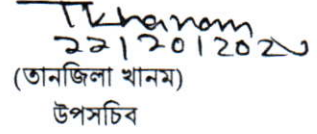 TKhanom
22|20|2020
(তানজিলা খানম)
উপসচিব